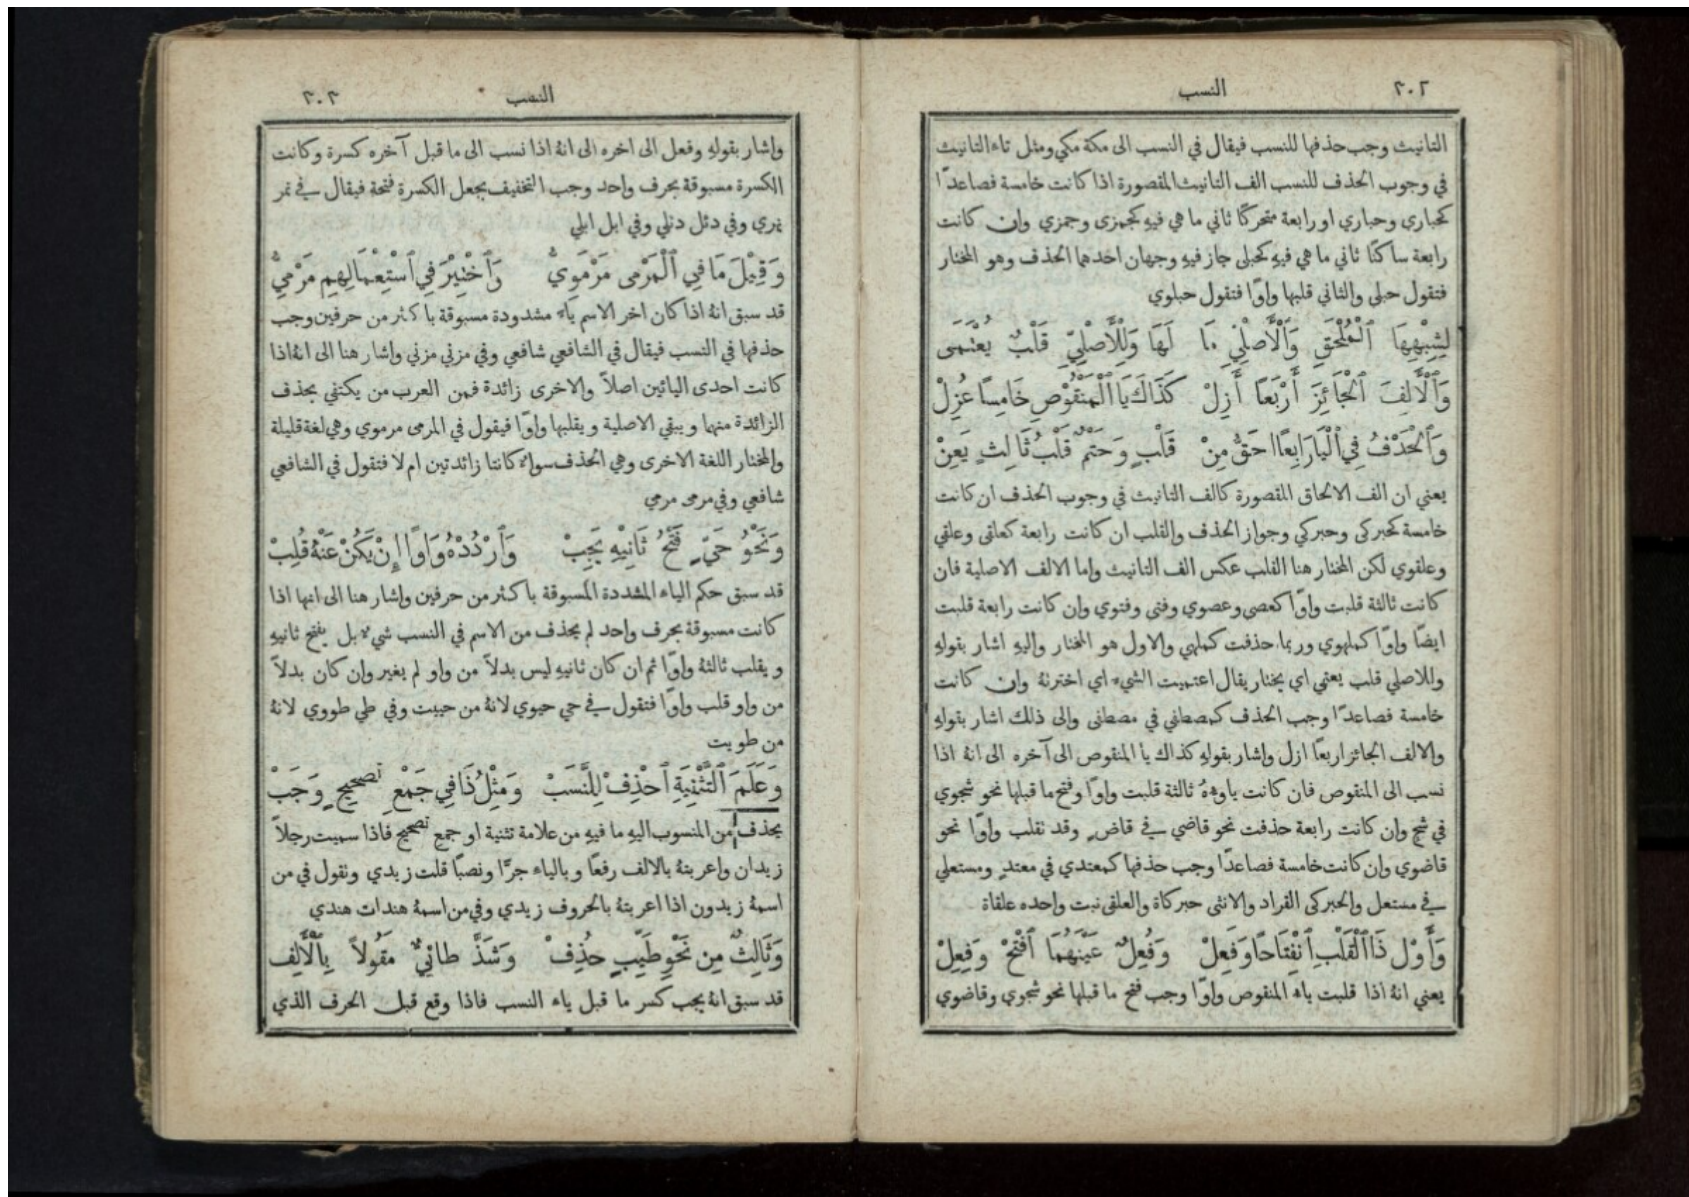 ٣٠٢
النسب
التانيث وجب حذفها للنسب فيقال في النسب الى مكة مكي ومثل تاء التانيث
في وجوب الحذف للنسب الف التانيث المقصورة اذا كانت خامسة فصاعدًا
كحباري وحباري او رابعة متحركًا ثاني ما هي فيهِ كجمزى وجمزي وان كانت
رابعة ساكنًا ثاني ما هي فيهِ كحبلى جاز فيهِ وجهان احدهما الحذف وهو المختار
فتقول حبلي والثاني قلبها واوًا فتقول حبلوي
لِشِبْهِهَا ٱلْمُلْحَقِ وَٱلْأَصْلِيِّ مَا لَهَا وَلِلْأَصْلِيِّ قَلْبٌ يُعْتَمَى
وَٱلْأَلِفَ ٱلْجَائِزَ أَرْبَعًا أَزِلْ كَذَاكَ يَا ٱلْمَنْقُوْصِ خَامِسًا عُزِلْ
وَٱلْحَذْفُ فِي ٱلْيَا رَابِعًا احَقُّ مِنْ قَلْبٍ وَحَتْمٌ قَلْبُ ثَالِثٍ يَعِنْ
يعني ان الف الالحاق المقصورة كالف التانيث في وجوب الحذف ان كانت
خامسة كحبركى وحبركي وجواز الحذف والقلب ان كانت رابعة كعلقى وعلقي
وعلقوي لكن المختار هنا القلب عكس الف التانيث واما الالف الاصلية فان
كانت ثالثة قلبت واوًا كعصى وعصوي وفتى وفتوي وان كانت رابعة قلبت
ايضًا واوًا كملهوي وربما حذفت كملهي والاول هو المختار واليهِ اشار بقولهِ
وللاصلي قلب يعتمي اي يختار يقال اعتميت الشيء اي اخترتهُ وان كانت
خامسة فصاعدًا وجب الحذف كمصطفي في مصطفى والى ذلك اشار بقولهِ
والالف الجائز اربعًا ازل واشار بقولهِ كذاك يا المنقوص الى آخره الى انهُ اذا
نسب الى المنقوص فان كانت ياوهُ ثالثة قلبت واوًا وفتح ما قبلها نحو شجوي
في شجٍ وان كانت رابعة حذفت نحو قاضي في قاضٍ وقد تقلب واوًا نحو
قاضوي وان كانت خامسة فصاعدًا وجب حذفها كمعتدي في معتدٍ ومستعلي
في مستعل والحبركى القراد والانثى حبركاة والعلقى نبت واحده علقاة
وَأَوْلِ ذَا ٱلْقَلْبِ ٱنْفِتَاحًا وَفَعِلْ وَفُعِلٌ عَيْنَهُمَا ٱفْتَحْ وَفِعِلْ
يعني انهُ اذا قلبت ياء المنقوص واوًا وجب فتح ما قبلها نحو شجوي وقاضوي
النسب
٣٠٣
واشار بقولهِ وفعل الى اخره الى انهُ اذا نسب الى ما قبل آخره كسرة وكانت
الكسرة مسبوقة بحرف واحد وجب التخفيف بجعل الكسرة فتحة فيقال في نمر
نمري وفي دئل دئلي وفي ابل ابلي
وَقِيْلَ مَا فِي ٱلْمَرْمى مَرْمَوِيُّ وَٱخْتِيْرَ فِي ٱسْتِعْمَالِهِمِ مَرْمِيُّ
قد سبق انهُ اذا كان اخر الاسم ياء مشدودة مسبوقة باكثر من حرفين وجب
حذفها في النسب فيقال في الشافعي شافعي وفي مزني مزني واشار هنا الى انهُ اذا
كانت احدى اليائين اصلاً والاخرى زائدة فمن العرب من يكتفي بحذف
الزائدة منهما ويبقي الاصلية ويقلبها واوًا فيقول في المرمى مرموي وهي لغة قليلة
والمختار اللغة الاخرى وهي الحذف سواءٌ كانتا زائدتين ام لا فتقول في الشافعي
شافعي وفي مرمى مرمي
وَنَحْوُ حَيٍّ فَتْحُ ثَانِيْهِ يَجِبْ وَٱرْدُدْهُ وَاوًا إِنْ يَكُنْ عَنْهُ قُلِبْ
قد سبق حكم الياء المشددة المسبوقة باكثر من حرفين واشار هنا الى انها اذا
كانت مسبوقة بحرف واحد لم يحذف من الاسم في النسب شيءٌ بل يفتح ثانيهِ
ويقلب ثالثهُ واوًا ثم ان كان ثانيهِ ليس بدلاً من واو لم يغير وان كان بدلاً
من واو قلب واوًا فتقول في حي حيوي لانهُ من حييت وفي طي طووي لانهُ
من طويت
وَعَلَمَ ٱلتَّثْنِيَةِ ٱحْذِفْ لِلنَّسَبْ وَمِثْلُ ذَا فِي جَمْعِ تصحيحٍ وَجَبْ
يحذف من المنسوب اليهِ ما فيهِ من علامة تثنية او جمع تصحيح فاذا سميت رجلاً
زيدان واعربتهُ بالالف رفعًا وبالياء جرًّا ونصبًا قلت زيدي وتقول في من
اسمهُ زيدون اذا اعربتهُ بالحروف زيدي وفي من اسمهُ هندات هندي
وَثَالِثٌ مِن نَحْوِ طَيِّبٍ حُذِفْ وَشَذَّ طائيٌّ مَقُولاً بِٱلْأَلِفِ
قد سبق انهُ يجب كسر ما قبل ياء النسب فاذا وقع قبل الحرف الذي